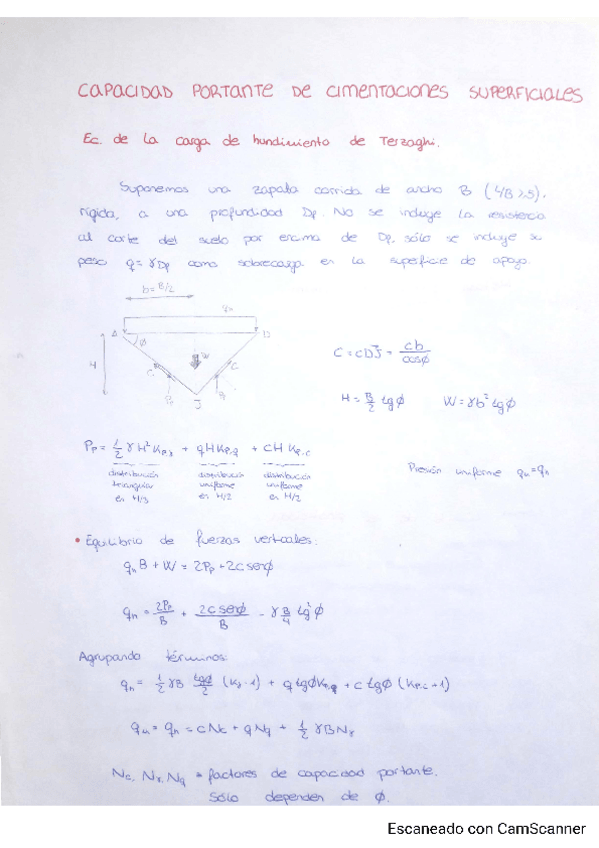 CAPACIDAD PORTANTE DE CIMENTACIONES SUPERFICIALES
Ec. de la carga de hundimiento de Terzaghi.
Suponemos una zapata corrida de ancho B (L/B>5),
rígida, a una profundidad Dp. No se incluye la resistencia
al corte del suelo por encima de Dp, sólo se incluye su
peso q=γDp como sobrecarga en la superficie de apoyo.
b=B/2
qn
A
φ
D
H
W
C
C
J
C = cDJ = cb/cosφ
H = B/2 tgφ W = γb² tgφ
Pp = 1/2 γH² Kp,γ + qH Kp,q + cH Kp,c
distribución distribución distribución
triangular uniforme uniforme
en H/3 en H/2 en H/2
Presión uniforme qu=qn
• Equilibrio de fuerzas verticales:
qn B + W = 2Pp + 2C senφ
qn = 2Pp/B + 2C senφ/B - γB/4 tgφ
Agrupando términos:
qn = 1/2 γB tgφ/2 (Kγ-1) + q tgφ Kp,q + c tgφ (Kp,c+1)
qu = qn = cNc + qNq + 1/2 γBNγ
Nc, Nγ, Nq = factores de capacidad portante.
Sólo dependen de φ.
Escaneado con CamScanner